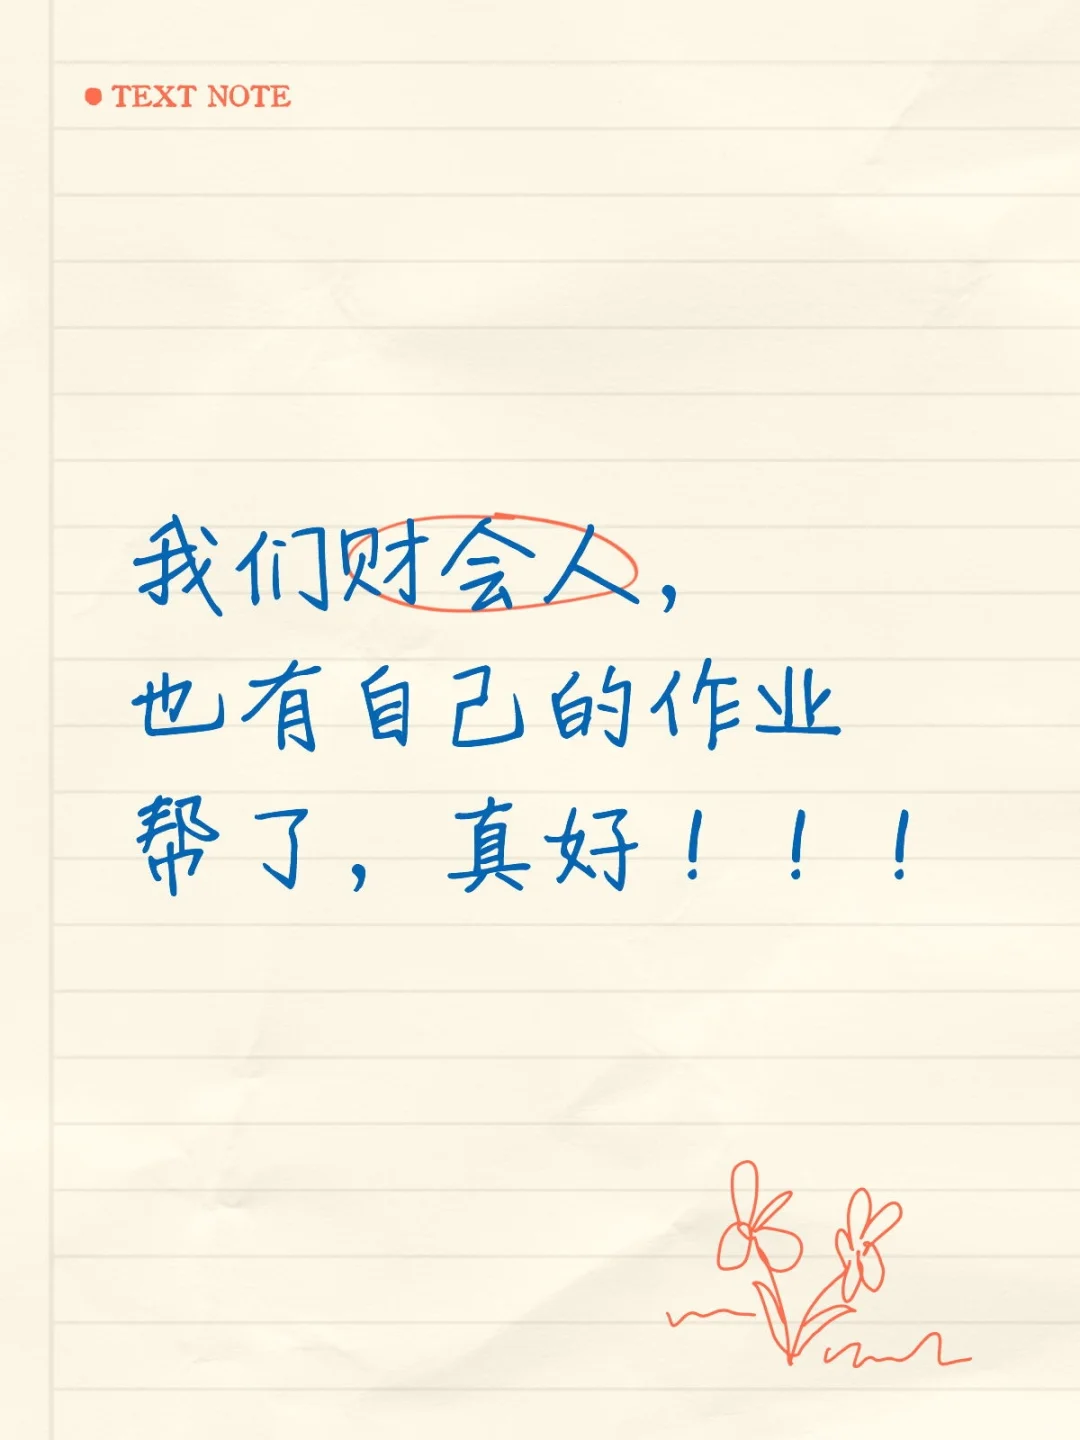 TEXT NOTE
我们财会人，
也有自己的作业
帮了，真好！！！